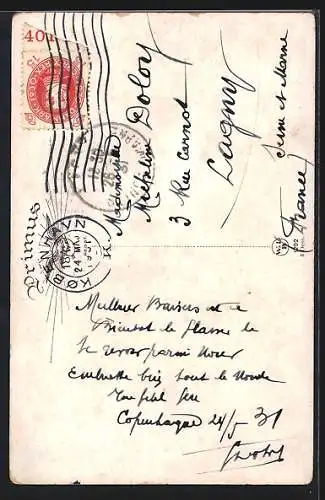 40
15
Primus
KØBENHAVN
24 MAJ
K
Mademoiselle
Micheline Doloy
3 Rue Carnot
Lagny
Seine et Marne
France
Meilleur Baisers et a
Bientot le plaisir de
te revoir parmi nous
Embrasse bien tout le Monde
Ton petit
Copenhague 24/5 31